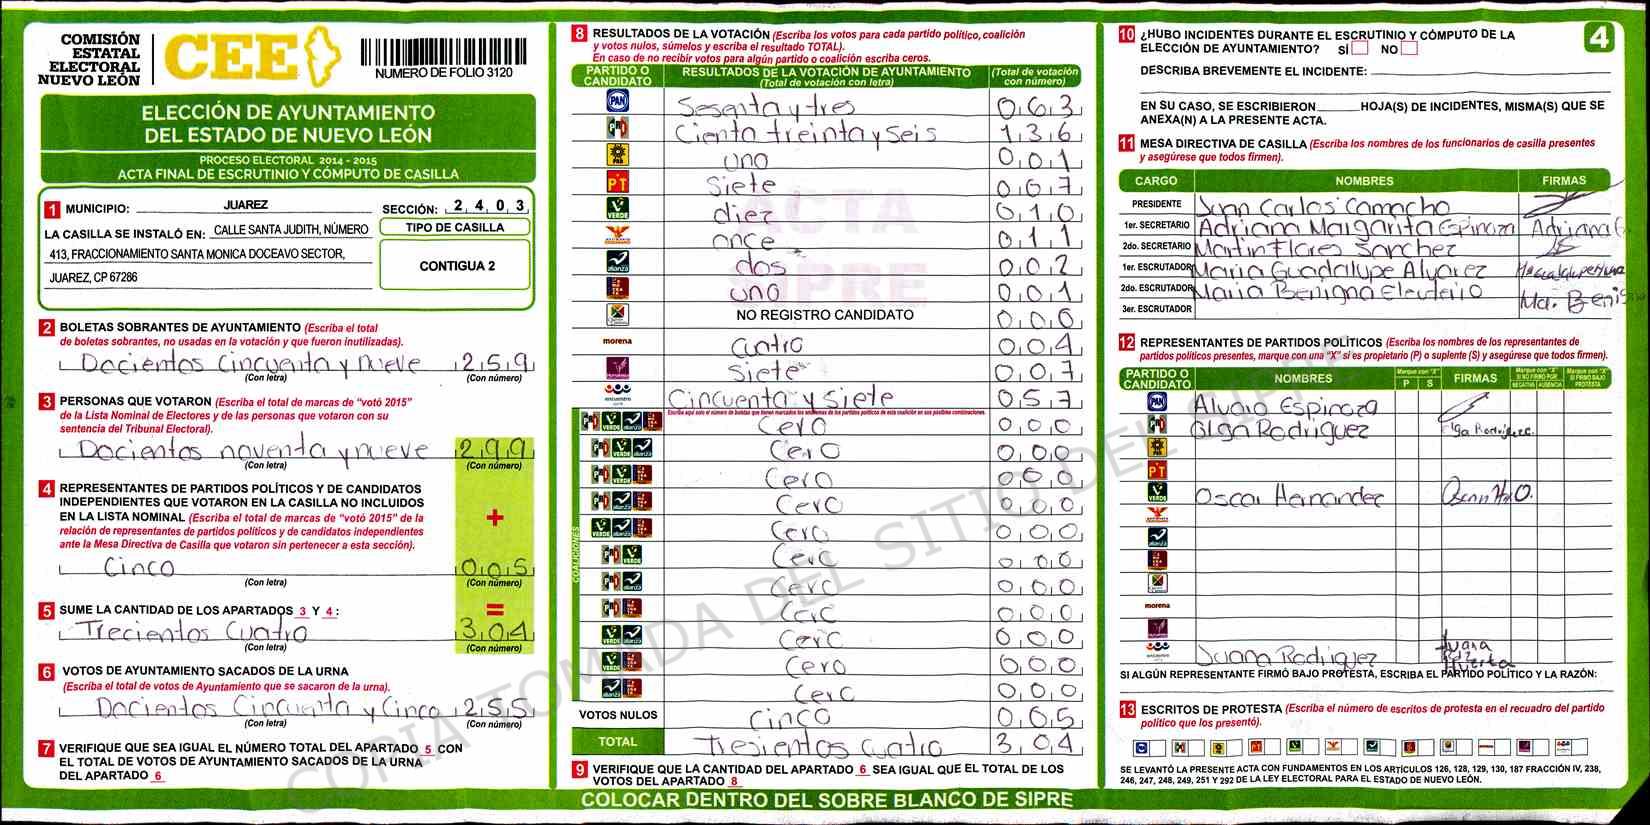 COMISIÓN
ESTATAL
ELECTORAL
NUEVO LEÓN
CEE
NUMERO DE FOLIO 3120
ELECCIÓN DE AYUNTAMIENTO
DEL ESTADO DE NUEVO LEÓN
PROCESO ELECTORAL 2014 - 2015
ACTA FINAL DE ESCRUTINIO Y CÓMPUTO DE CASILLA
1 MUNICIPIO: JUAREZ SECCIÓN: 2 4 0 3
LA CASILLA SE INSTALÓ EN: CALLE SANTA JUDITH, NÚMERO
413, FRACCIONAMIENTO SANTA MONICA DOCEAVO SECTOR,
JUAREZ, CP 67286
TIPO DE CASILLA
CONTIGUA 2
2 BOLETAS SOBRANTES DE AYUNTAMIENTO (Escriba el total
de boletas sobrantes, no usadas en la votación y que fueron inutilizadas).
Docientos Cincuenta y nueve 2 5 9
(Con letra) (Con número)
3 PERSONAS QUE VOTARON (Escriba el total de marcas de "votó 2015"
de la Lista Nominal de Electores y de las personas que votaron con su
sentencia del Tribunal Electoral).
Docientos noventa y nueve 2 9 9
(Con letra) (Con número)
4 REPRESENTANTES DE PARTIDOS POLÍTICOS Y DE CANDIDATOS
INDEPENDIENTES QUE VOTARON EN LA CASILLA NO INCLUIDOS
EN LA LISTA NOMINAL (Escriba el total de marcas de "votó 2015" de la
relación de representantes de partidos políticos y de candidatos independientes
ante la Mesa Directiva de Casilla que votaron sin pertenecer a esta sección).
+
Cinco 0 0 5
(Con letra) (Con número)
5 SUME LA CANTIDAD DE LOS APARTADOS 3 Y 4: =
Trecientos Cuatro 3 0 4
(Con letra) (Con número)
6 VOTOS DE AYUNTAMIENTO SACADOS DE LA URNA
(Escriba el total de votos de Ayuntamiento que se sacaron de la urna).
Docientos Cincuenta y Cinco 2 5 5
(Con letra) (Con número)
7 VERIFIQUE QUE SEA IGUAL EL NÚMERO TOTAL DEL APARTADO 5 CON
EL TOTAL DE VOTOS DE AYUNTAMIENTO SACADOS DE LA URNA
DEL APARTADO 6
8 RESULTADOS DE LA VOTACIÓN (Escriba los votos para cada partido político, coalición
y votos nulos, súmelos y escriba el resultado TOTAL).
En caso de no recibir votos para algún partido o coalición escriba ceros.
PARTIDO O CANDIDATO RESULTADOS DE LA VOTACIÓN DE AYUNTAMIENTO (Total de votación con letra) (Total de votación con número)
PAN Sesenta y tres 0 6 3
PRI Ciento treinta y seis 1 3 6
PRD uno 0 0 1
PT Siete 0 0 7
VERDE diez 0 1 0
once 0 1 1
alianza dos 0 0 2
uno 0 0 1
NO REGISTRO CANDIDATO 0 0 0
morena cuatro 0 0 4
Siete 0 0 7
encuentro Cincuenta y Siete 0 5 7
Escriba aquí solo el número de boletas que tienen marcados los emblemas de los partidos políticos de esta coalición en sus posibles combinaciones.
COALICIONES
Cero 0 0 0
Cero 0 0 0
Cero 0 0 0
Cero 0 0 0
Cero 0 0 0
Cero 0 0 0
Cero 0 0 0
Cero 0 0 0
Cero 0 0 0
Cero 0 0 0
Cero 0 0 0
VOTOS NULOS Cinco 0 0 5
TOTAL Tresientos Cuatro 3 0 4
9 VERIFIQUE QUE LA CANTIDAD DEL APARTADO 6 SEA IGUAL QUE EL TOTAL DE LOS
VOTOS DEL APARTADO 8
COLOCAR DENTRO DEL SOBRE BLANCO DE SIPRE
ACTA
SIPRE
COPIA TOMADA DEL SITIO DEL SIPRE
10 ¿HUBO INCIDENTES DURANTE EL ESCRUTINIO Y CÓMPUTO DE LA
ELECCIÓN DE AYUNTAMIENTO? SÍ NO
4
DESCRIBA BREVEMENTE EL INCIDENTE:
EN SU CASO, SE ESCRIBIERON HOJA(S) DE INCIDENTES, MISMA(S) QUE SE
ANEXA(N) A LA PRESENTE ACTA.
11 MESA DIRECTIVA DE CASILLA (Escriba los nombres de los funcionarios de casilla presentes
y asegúrese que todos firmen).
CARGO NOMBRES FIRMAS
PRESIDENTE Juan Carlos Camacho
1er. SECRETARIO Adriana Margarita Espinoza Adriana
2do. SECRETARIO Martin Flores Sanchez
1er. ESCRUTADOR Maria Guadalupe Alvarez
2do. ESCRUTADOR Maria Benigna Eleuterio Ma. Benig
3er. ESCRUTADOR
12 REPRESENTANTES DE PARTIDOS POLÍTICOS (Escriba los nombres de los representantes de
partidos políticos presentes, marque con una "X" si es propietario (P) o suplente (S) y asegúrese que todos firmen).
PARTIDO O CANDIDATO NOMBRES Marque con "X" P S FIRMAS Marque con "X" SI NO FIRMÓ POR NEGATIVA AUSENCIA Marque con "X" SI FIRMÓ BAJO PROTESTA
PAN Alvaro Espinoza
PRI Olga Rodriguez Olga Rodriguez
PRD
PT
VERDE Oscar Hernandez
alianza
morena
encuentro Juana Rodriguez Juana Rdz Huerta
SI ALGÚN REPRESENTANTE FIRMÓ BAJO PROTESTA, ESCRIBA EL PARTIDO POLÍTICO Y LA RAZÓN:
13 ESCRITOS DE PROTESTA (Escriba el número de escritos de protesta en el recuadro del partido
político que los presentó).
SE LEVANTÓ LA PRESENTE ACTA CON FUNDAMENTOS EN LOS ARTÍCULOS 126, 128, 129, 130, 187 FRACCIÓN IV, 238,
246, 247, 248, 249, 251 Y 292 DE LA LEY ELECTORAL PARA EL ESTADO DE NUEVO LEÓN.